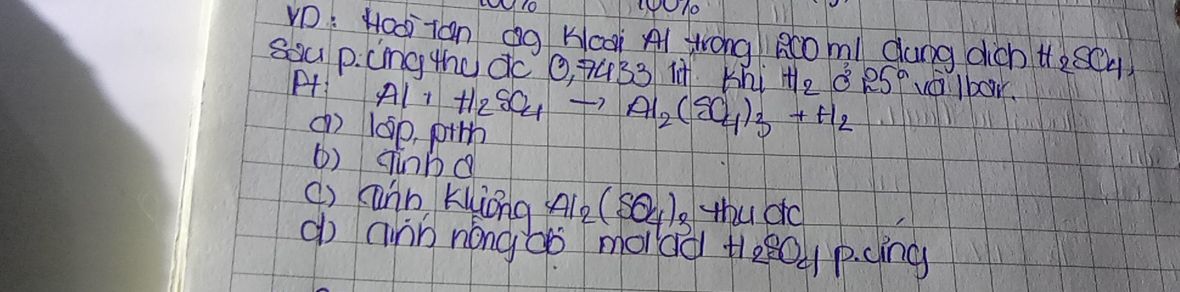 100% 100%
VD: Hoà tan ag kloại Al trong 200 ml dung dịch H2SO4,
sau p.ứng thu đc 0,7433 lít khí H2 ở 25° và 1bar.
Pt: Al + H2SO4 → Al2(SO4)3 + H2
a) lập ptth
b) tính a
c) tính klượng Al2(SO4)3 thu đc
d) tính nồng độ mol dd H2SO4 p.ứng